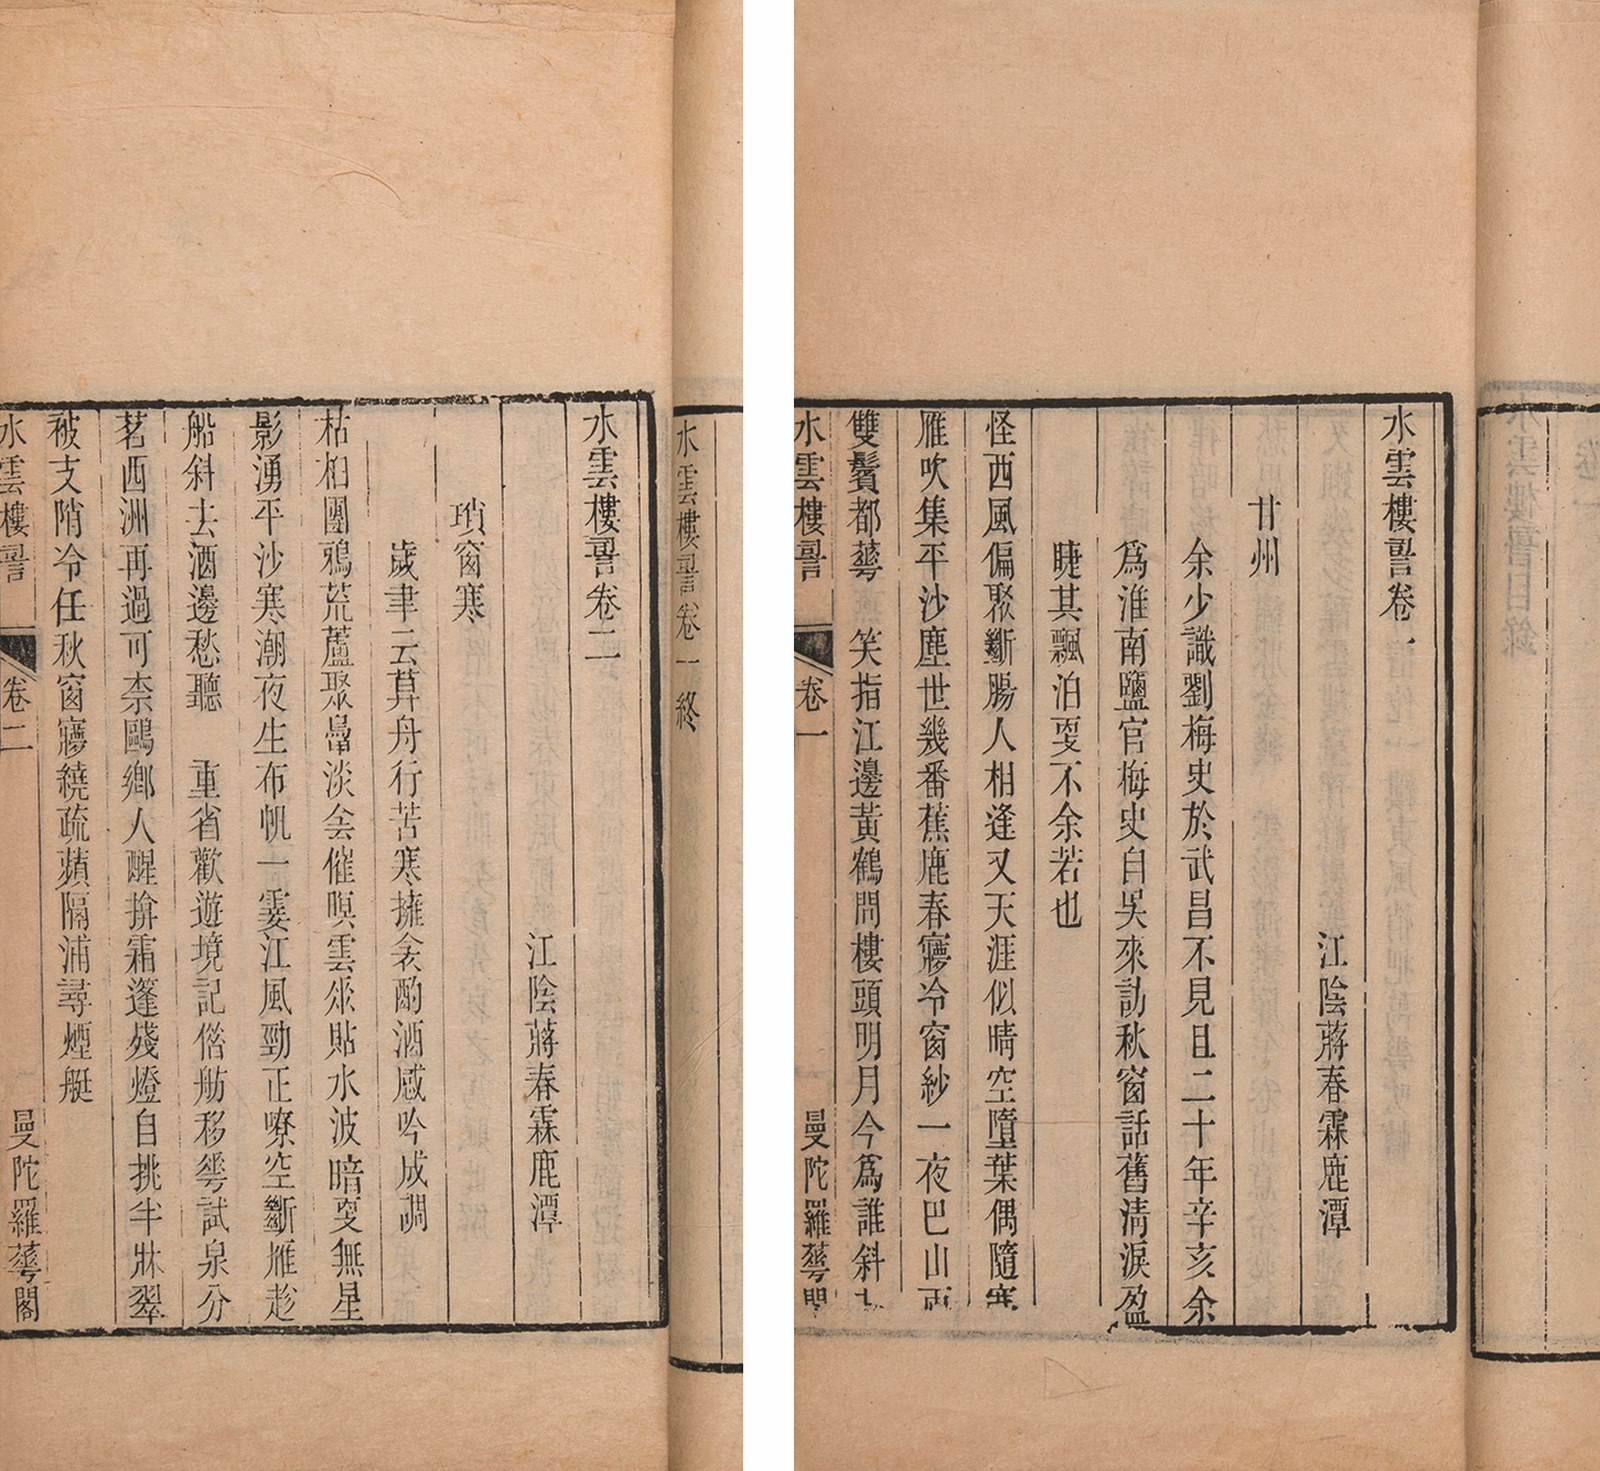 水雲樓䛐卷一
江陰蔣春霖鹿潭
甘州
余少識劉梅史於武昌不見且二十年辛亥余
爲淮南鹽官梅史自吳來訪秋窗話舊清淚盈
睫其飄泊㪅不余若也
怪西風偏聚斷腸人相逢又天涯似晴空墮葉偶隨寒
雁吹集平沙塵世幾番蕉鹿春㝱冷窗紗一夜巴山雨
雙鬢都蕐 笑指江邊黃鶴問樓頭明月今爲誰斜
水雲樓䛐 卷一 曼陀羅蕐閣
水雲樓䛐卷一終
水雲樓䛐卷二
江陰蔣春霖鹿潭
瑣窗寒
歲聿云莫舟行苦寒擁衾酌酒感吟成調
枯柏團鴉荒蘆聚淡侌催暝雲㐺貼水波暗㪅無星
影湧平沙寒潮夜生布帆一霎江風勁正嘹空斷雁趁
船斜去酒邊愁聽 重省歡遊境記偕舫移蕐試泉分
茗西洲再過可柰鷗鄉人醒拚霜篷殘燈自挑半牀翠
被支陗冷任秋窗㝱繞疏蘋隔浦尋煙艇
水雲樓䛐 卷二 曼陀羅蕐閣